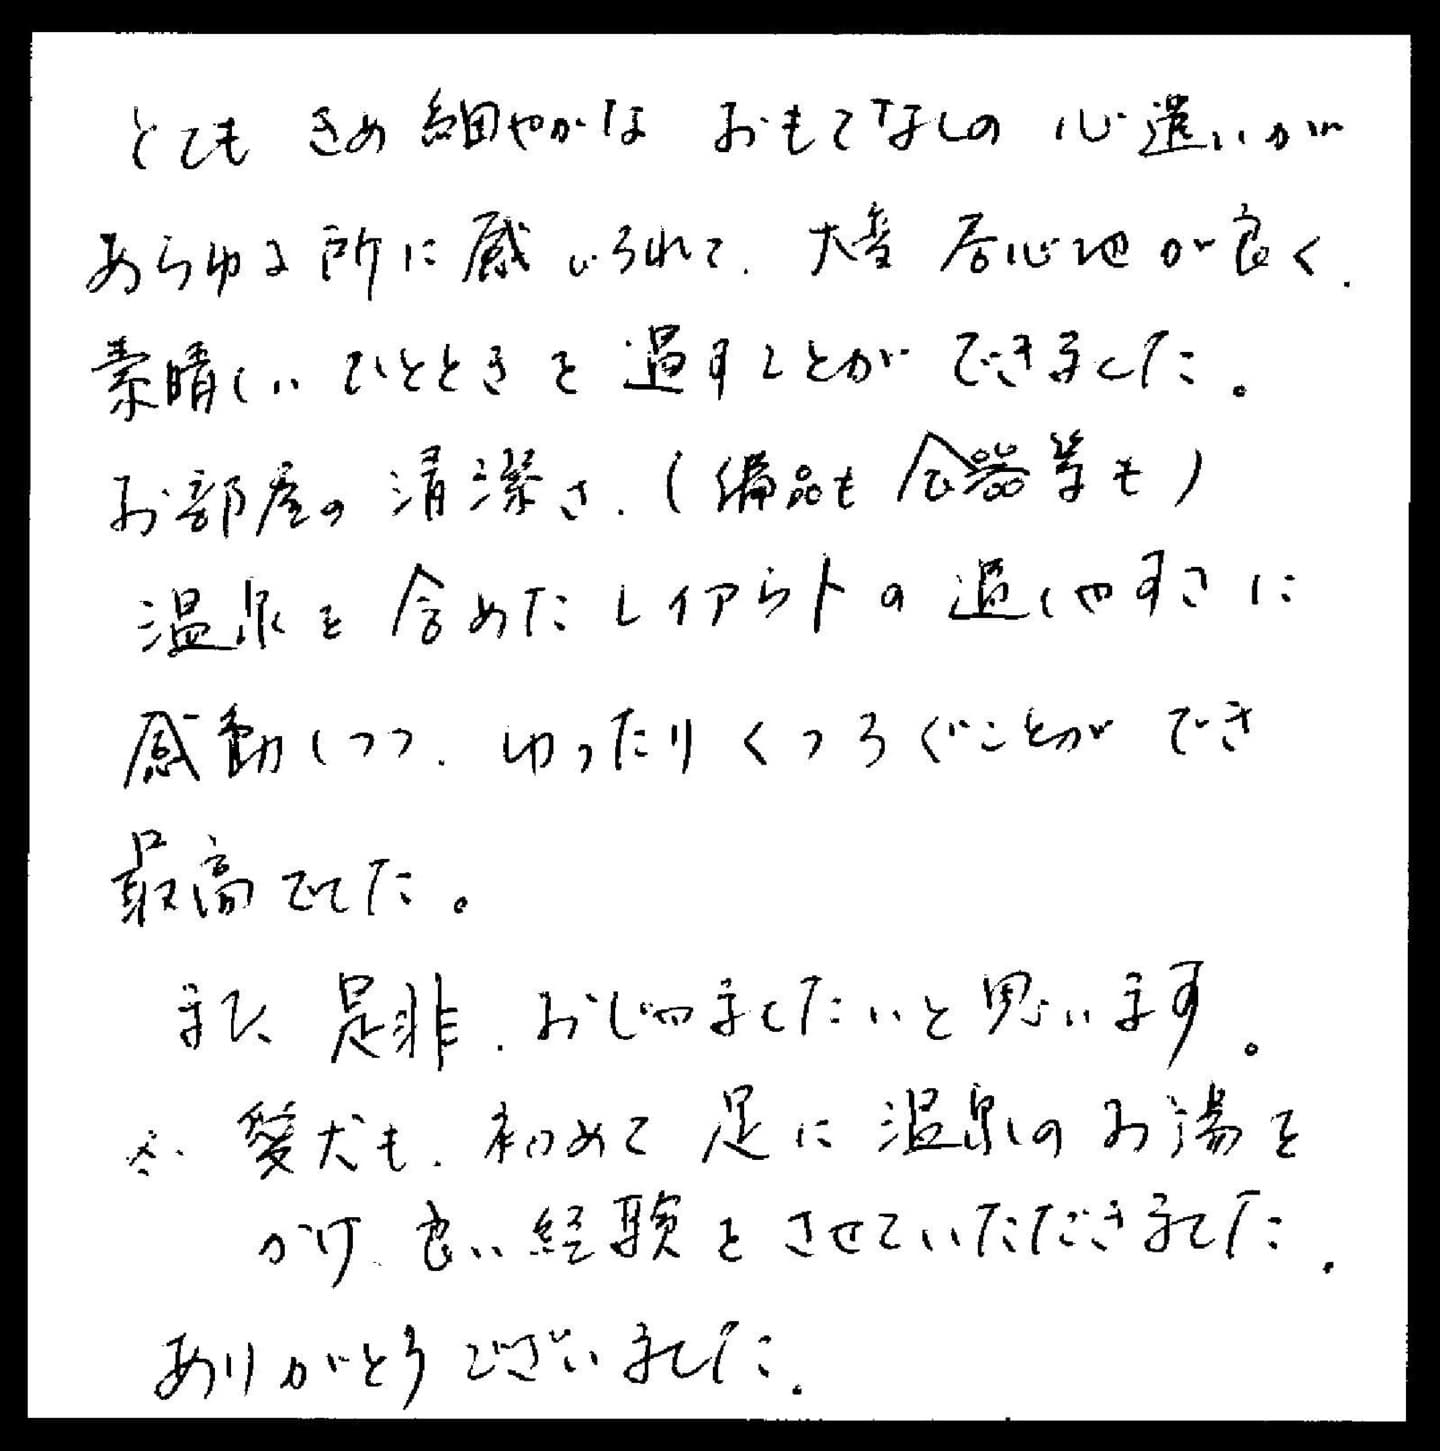 とても きめ細やかな おもてなしの 心遣いが
あらゆる所に感じられて、大変 居心地が良く、
素晴しい ひとときを 過すことが できました。
お部屋の清潔さ、(備品も食器等も)
温泉を含めたレイアウトの過しやすさに
感動しつつ、ゆったりくつろぐことができ
最高でした。
また 是非、おじゃましたいと思います。
※ 愛犬も、初めて 足に温泉のお湯を
かけ、良い経験をさせていただきました。
ありがとうございました。